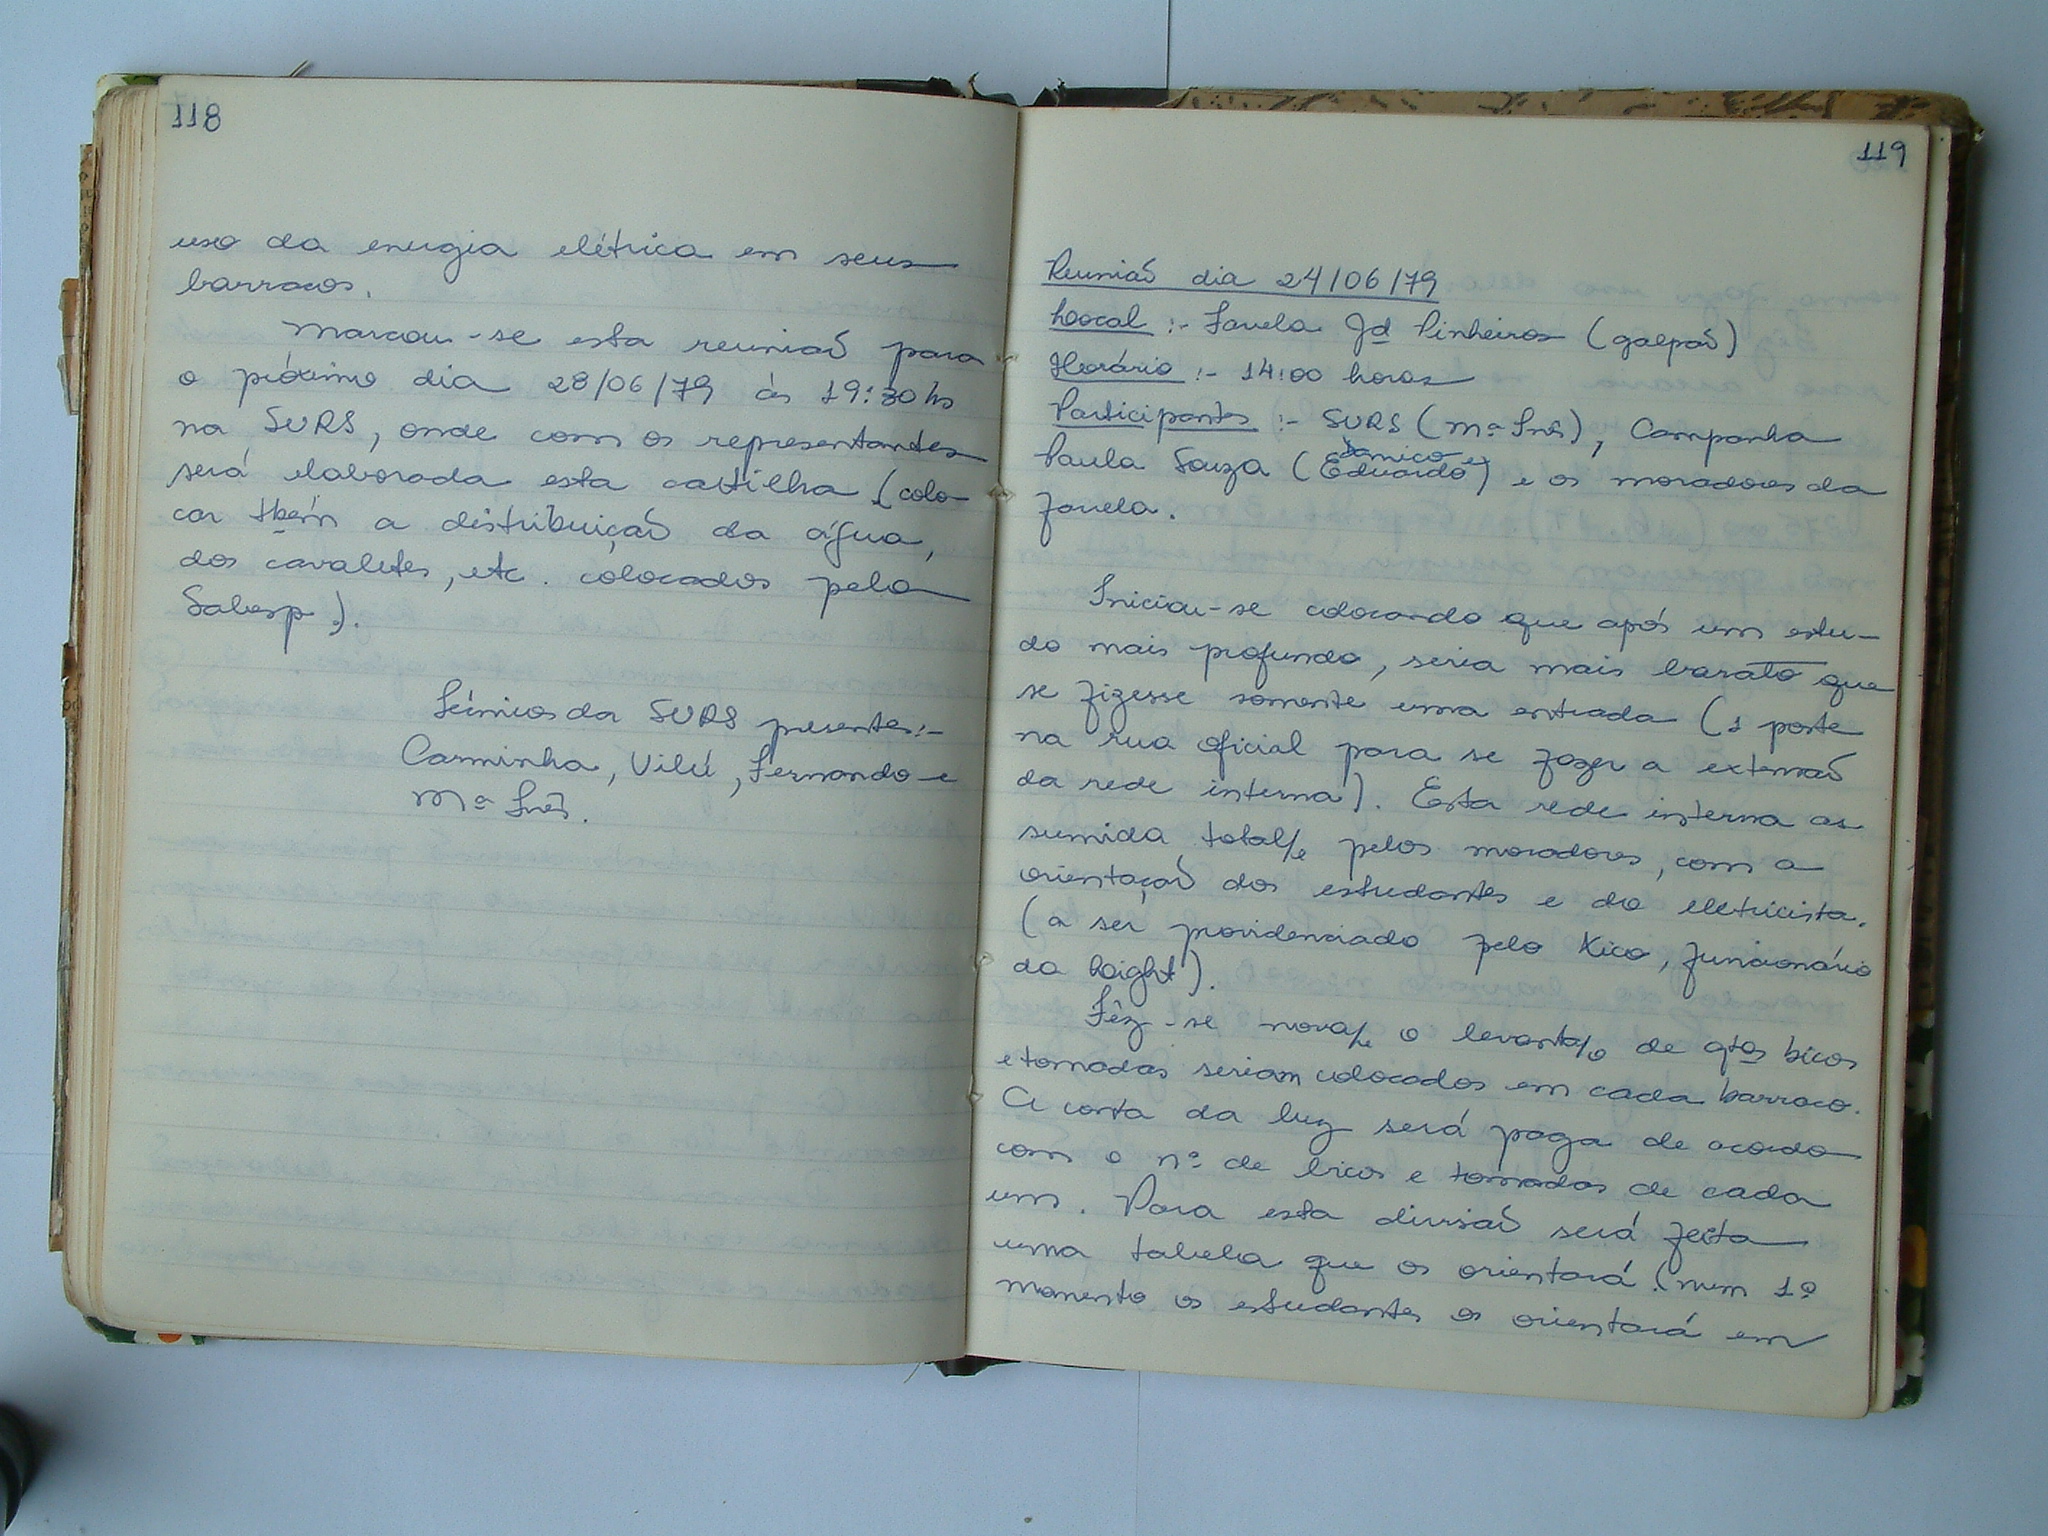 118
uso da energia elétrica em seus
barracos.
Marcou-se esta reunião para
o próximo dia 28/06/79 às 19:30 hs
na SURS, onde com os representantes
será elaborada esta cartilha (colo-
car tbém a distribuição da água,
dos cavaletes, etc. colocados pela
Sabesp.).
Técnicos da SURS presentes:-
Carminha, Vilú, Fernando e
Mª Inês.
119
Reunião dia 24/06/79
Local :- Favela Jd Pinheiros (galpão)
Horário :- 14:00 horas
Participantes :- SURS (Mª Inês), Campanha
Damico e
Paula Souza (Eduardo) e os moradores da
favela.
Iniciou-se colocando que após um estu-
do mais profundo, seria mais barato que
se fizesse somente uma entrada (1 poste
na rua oficial para se fazer a extensão
da rede interna). Esta rede interna as
sumida total/e pelos moradores, com a
orientação dos estudantes e do eletricista.
(a ser providenciado pelo Kico, funcionário
da Light).
Fêz-se nova/e o levanta/o de qtos bicos
e tomadas seriam colocados em cada barraco.
A conta da luz será paga de acordo
com o nº de bicos e tomadas de cada
um. Para esta divisão será feita
uma tabela que os orientará (num 1º
momento os estudantes os orientará em